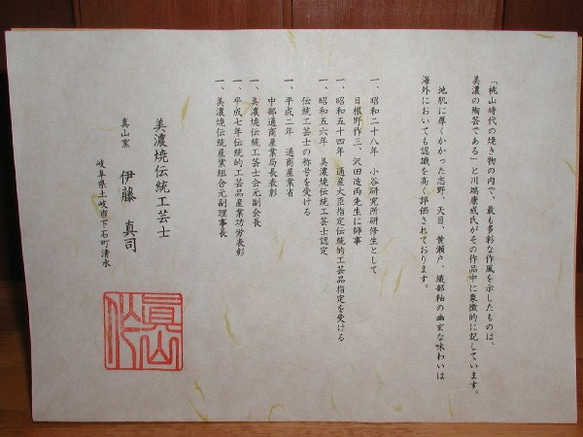 「桃山時代の焼き物の内で、最も多彩な作風を示したものは、
美濃の陶芸である」と川端康成氏がその作品中に象徴的に記しています。
地肌に厚くかかった志野、天目、黄瀬戸、織部釉の幽玄な味わいは
海外においても認識を高く評価されております。
一、昭和二十八年 小谷研究所研修生として
日根野作三、沢田造両先生に師事
一、昭和五十四年 通産大臣指定伝統的工芸品指定を受ける
一、昭和五六年 美濃焼伝統工芸士認定
伝統工芸士の称号を受ける
一、平成二年 通商産業省
中部通商産業局長表彰
一、美濃焼伝統工芸士会元副会長
一、平成七年伝統的工芸品産業功労表彰
一、美濃焼伝統産業組合元副理事長
美濃焼伝統工芸士
真山窯 伊藤 真司
岐阜県土岐市下石町清水